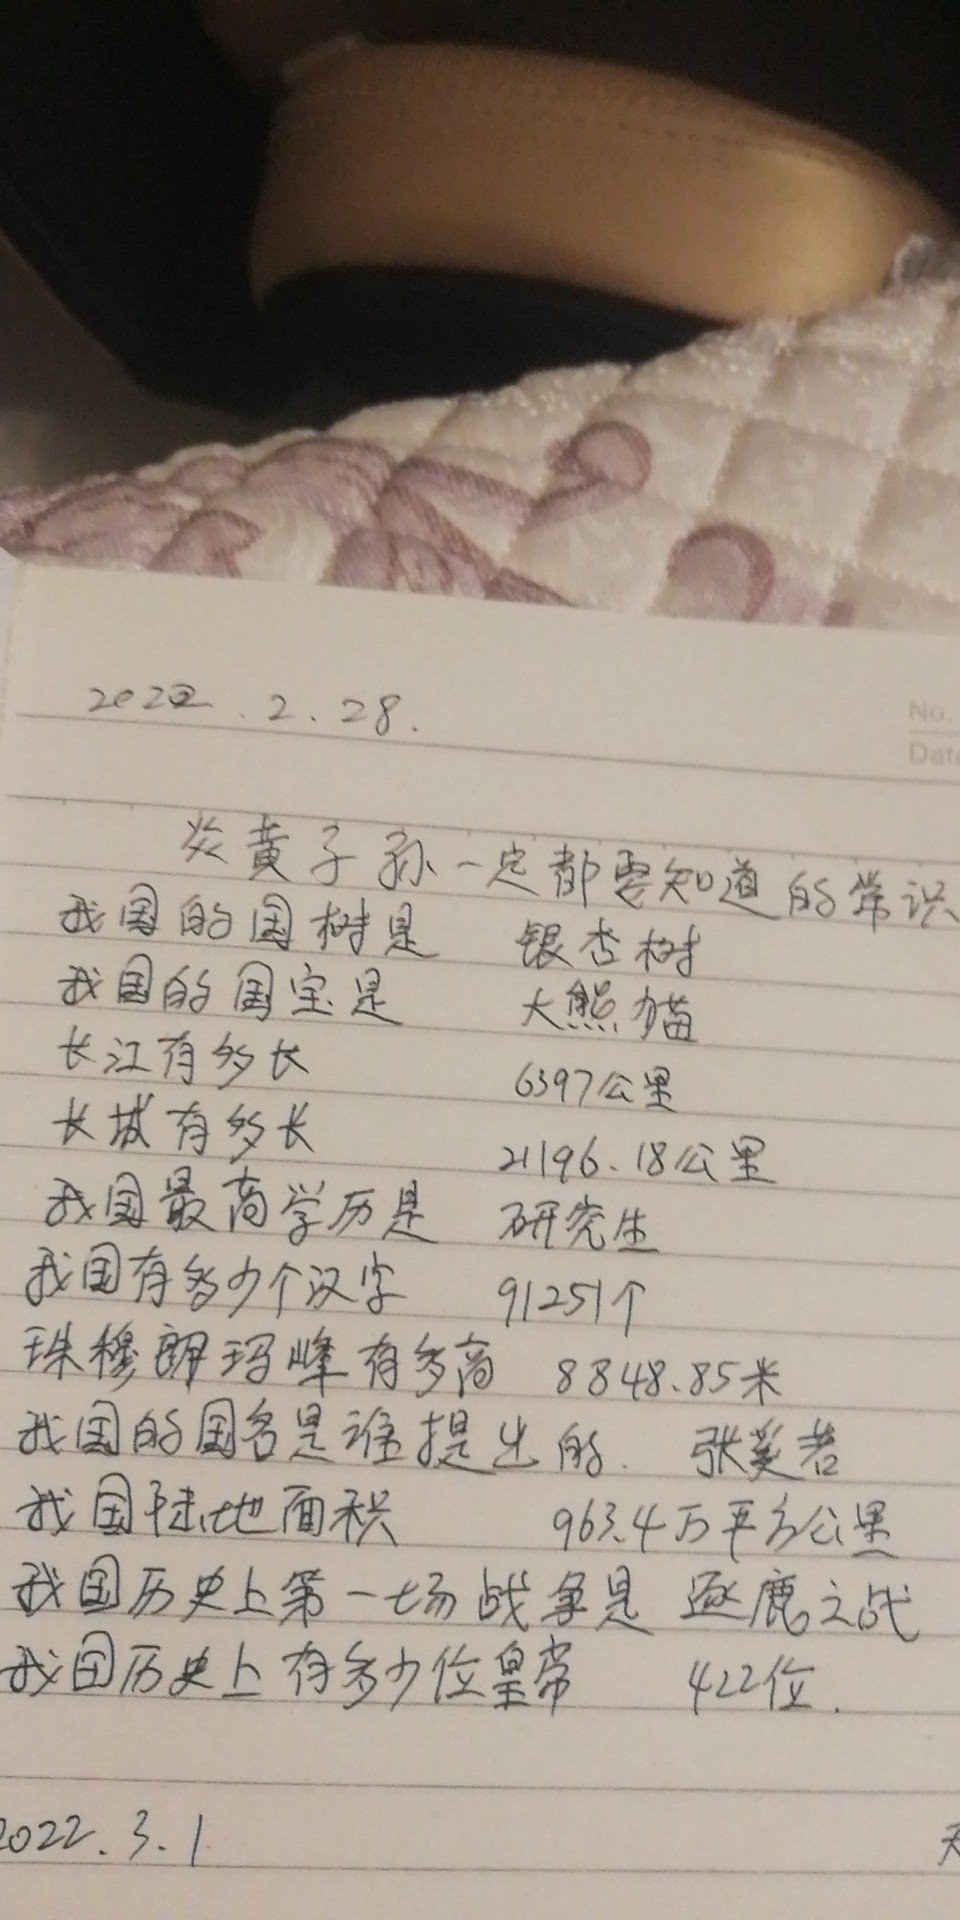 2022.2.28.
No.
Date
炎黄子孙一定都要知道的常识
我国的国树是 银杏树
我国的国宝是 大熊猫
长江有多长 6397公里
长城有多长 21196.18公里
我国最高学历是 研究生
我国有多少个汉字 91251个
珠穆朗玛峰有多高 8848.85米
我国的国名是谁提出的. 张奚若
我国陆地面积 963.4万平方公里
我国历史上第一场战争是 逐鹿之战
我国历史上有多少位皇帝 422位.
2022.3.1